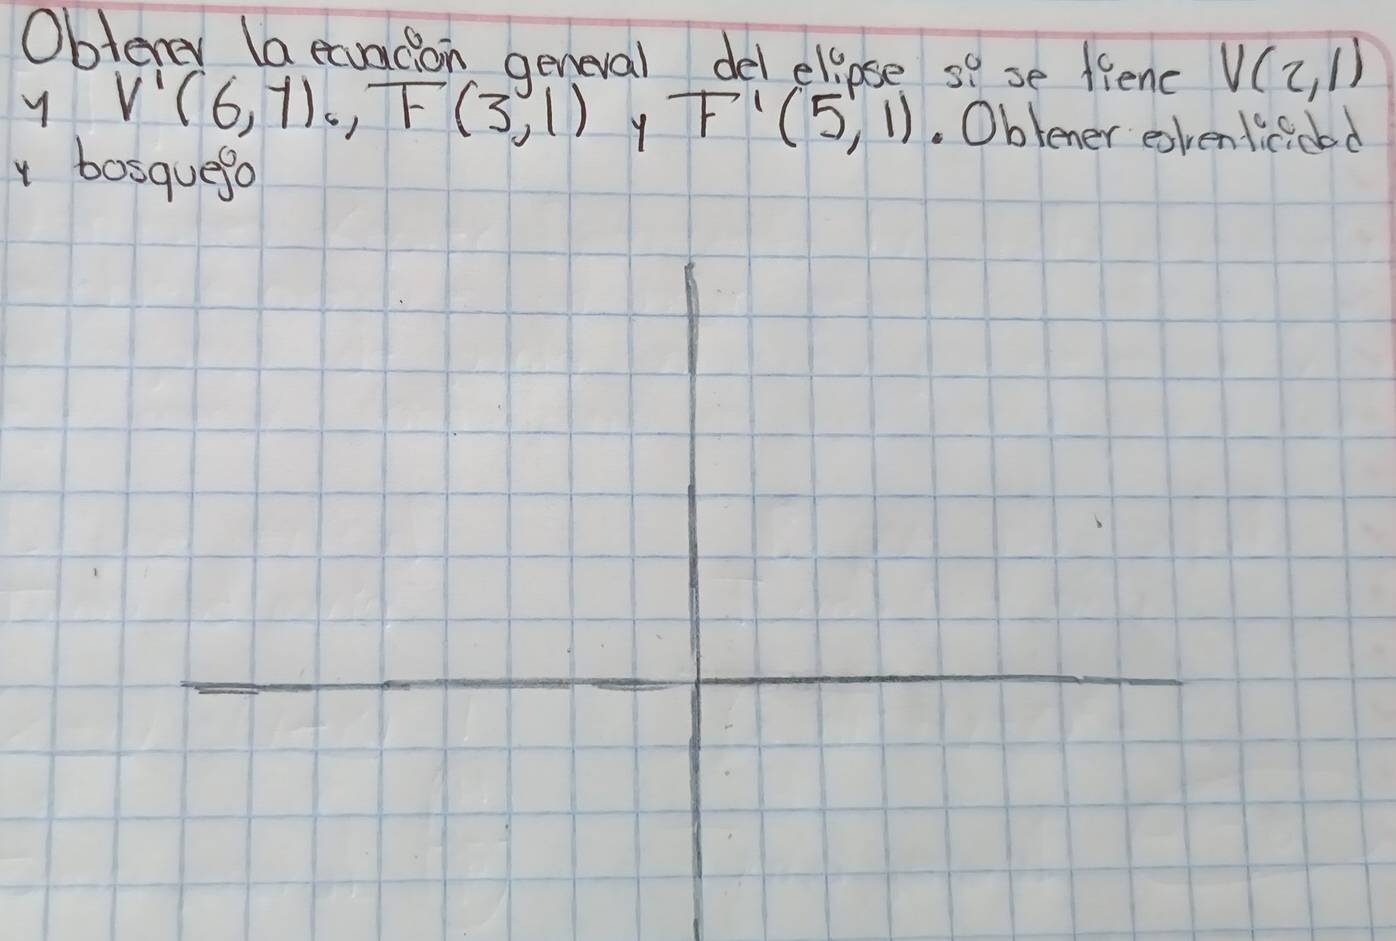 Obtener la ecuación general del elipse si se tiene V(2,1)
y V'(6,1)., F(3,1) y F'(5,1). Obtener exentricidad
y bosquejo